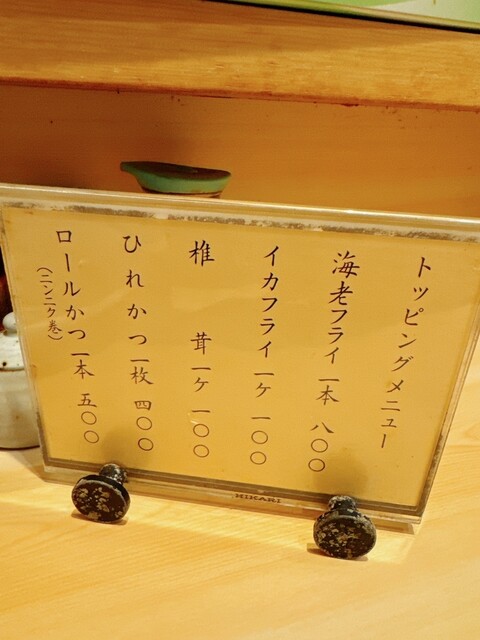 トッピングメニュー
海老フライ 一本 八〇〇
イカフライ 一ケ 一〇〇
椎茸 一ケ 一〇〇
ひれかつ 一枚 四〇〇
ロールかつ 一本 五〇〇
(ニンニク巻)
HIKARI